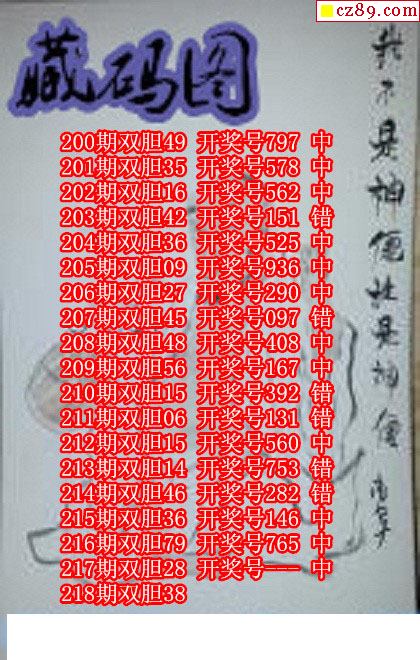 cz89.com
藏码图
200期双胆49 开奖号797 中
201期双胆35 开奖号578 中
202期双胆16 开奖号562 中
203期双胆42 开奖号151 错
204期双胆36 开奖号525 中
205期双胆09 开奖号936 中
206期双胆27 开奖号290 中
207期双胆45 开奖号097 错
208期双胆48 开奖号408 中
209期双胆56 开奖号167 中
210期双胆15 开奖号392 错
211期双胆06 开奖号131 错
212期双胆15 开奖号560 中
213期双胆14 开奖号753 错
214期双胆46 开奖号282 错
215期双胆36 开奖号146 中
216期双胆79 开奖号765 中
217期双胆28 开奖号--- 中
218期双胆38
我不是神但我是神僧